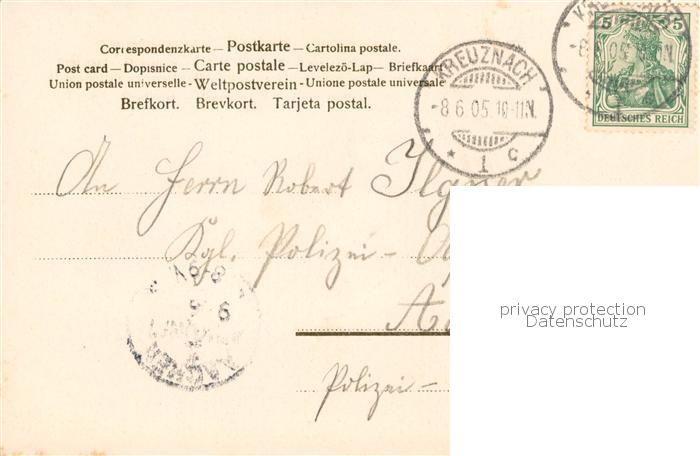 Correspondenzkarte – Postkarte – Cartolina postale.
Post card – Dopisnice – Carte postale – Levelezö-Lap – Briefkaart
Union postale universelle - Weltpostverein - Unione postale universale
Brefkort. Brevkort. Tarjeta postal.
KREUZNACH
-8.6.05.10-11N.
* 1 c
5 5
DEUTSCHES REICH
An Herrn Robert Ilgner
Kgl. Polizei-
AACHEN
Polizei-
privacy protection
Datenschutz